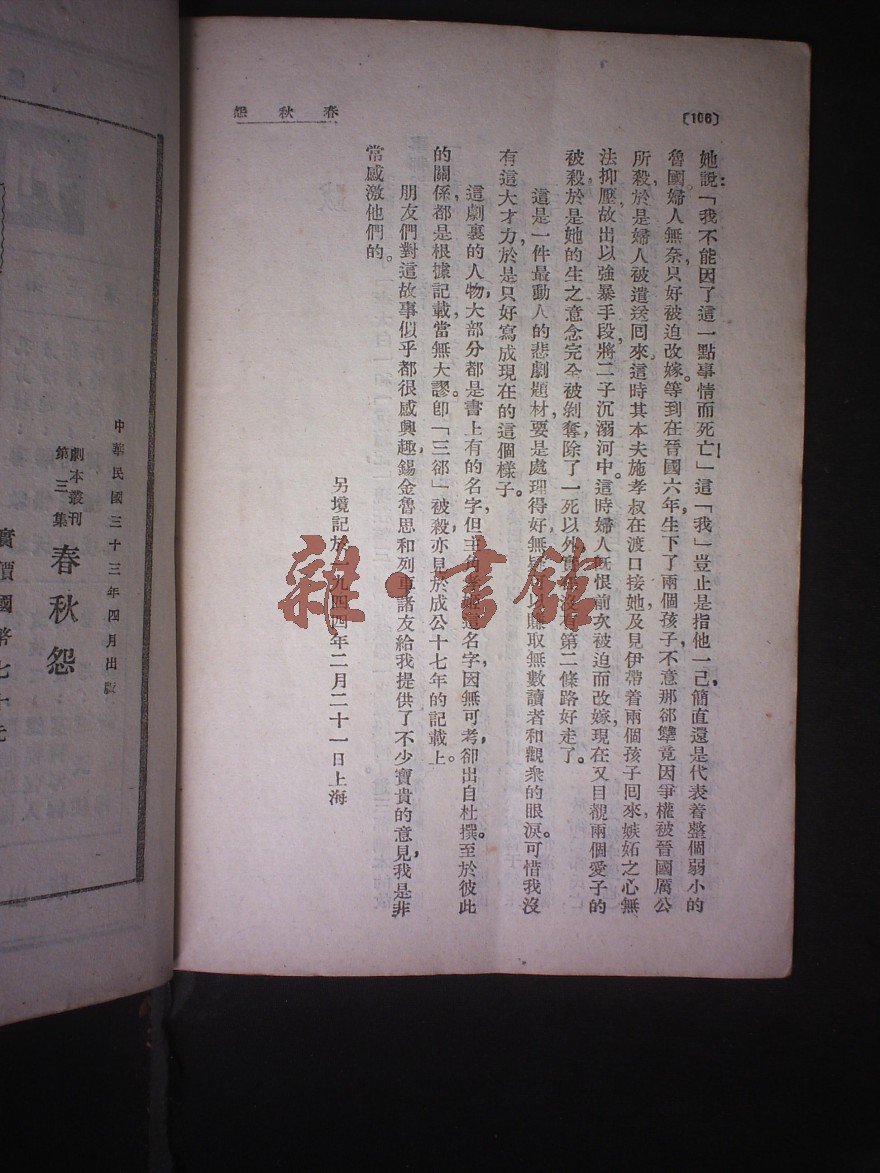 〔106〕
春秋怨
她說：「我不能因了這一點事情而死亡！」這「我」豈止是指他一己，簡直還是代表着整個弱小的
魯國婦人無奈，只好被迫改嫁。等到在晉國六年，生下了兩個孩子，不意那郤犨竟因爭權被晉國厲公
所殺，於是婦人被遣送回來。這時其本夫施孝叔在渡口接她，及見伊帶着兩個孩子回來，嫉妬之心無
法抑壓，故出以強暴手段，將二子沉溺河中。這時婦人既恨前次被迫而改嫁，現在又目覩兩個愛子的
被殺，於是她的生之意念完全被剝奪，除了一死以外，實在沒有第二條路好走了。
這是一件最動人的悲劇題材，要是處理得好，無疑可以賺取無數讀者和觀衆的眼淚。可惜我沒
有這大才力，於是只好寫成現在的這個樣子。
這劇裏的人物，大部分都是書上有的名字，但主角這名字，因無可考，卻出自杜撰。至於彼此
的關係，都是根據記載，當無大謬。卽「三郤」被殺，亦見於成公十七年的記載上。
朋友們對這故事似乎都很感興趣，錫金魯思和列車諸友給我提供了不少寶貴的意見，我是非
當感激他們的。
另境記於一九四四年二月二十一日上海
中華民國三十三年四月出版
劇本叢刊
第三集
春秋怨
實價國幣七十元
雜·書館